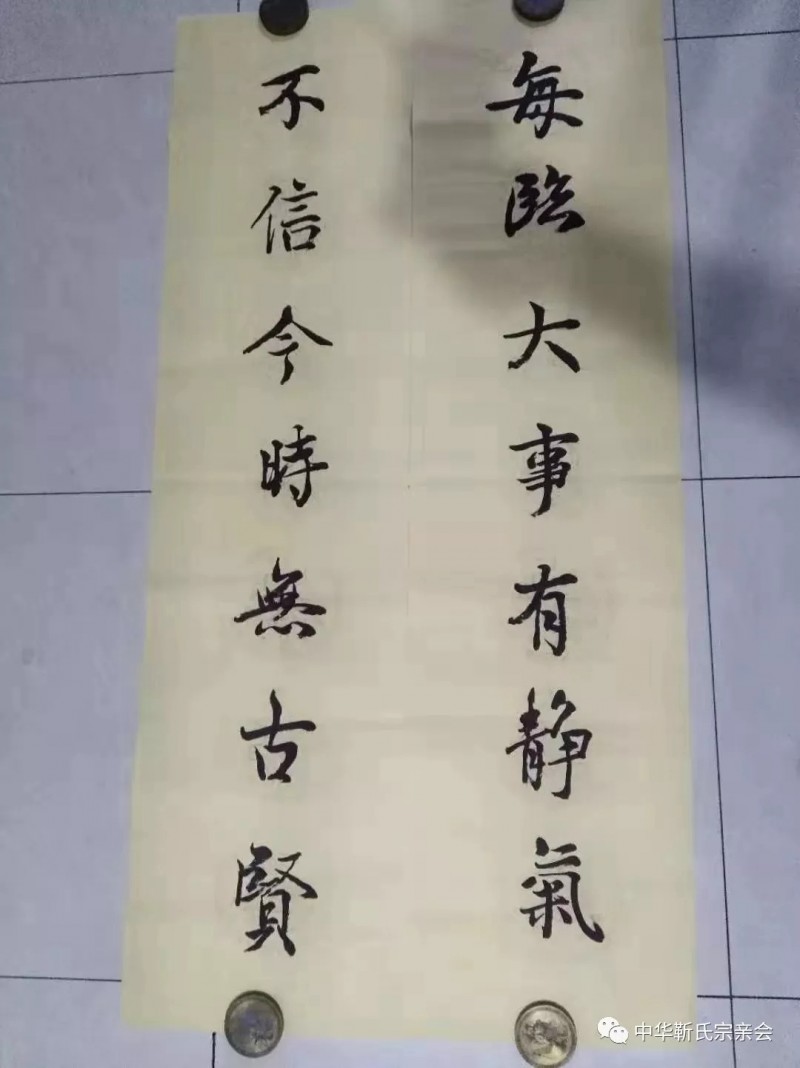 每臨大事有静氣
不信今時無古賢
中华靳氏宗亲会